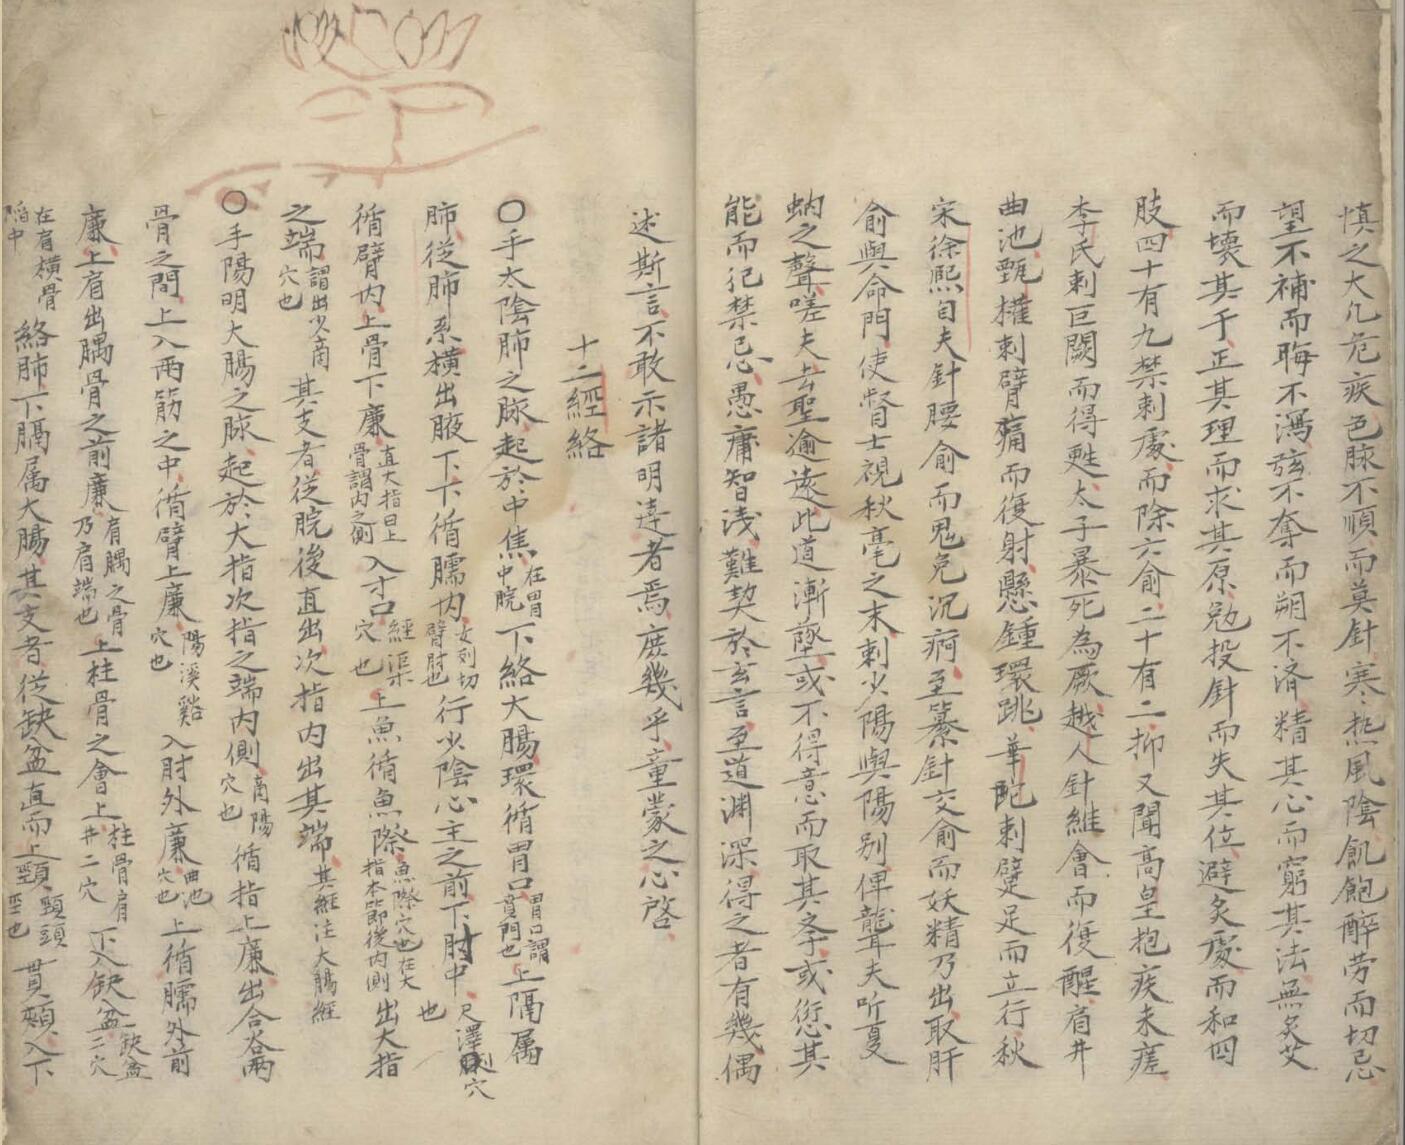 慎之大凡危疾色脉不順而莫針寒热風陰飢飽醉劳而切忌
望不補而晦不瀉弦不奪而朔不済精其心而窮其法無灸艾
而壊其于正其理而求其原勉投針而失其位避灸處而和四
肢四十有九禁刺處而除六俞二十有二抑又聞髙皇抱疾未瘥
李氏刺巨闕而得甦太子暴死為厥越人針維會而復醒肩井
曲池甄權刺臂痛而復射懸鍾環跳華陀刺躄足而立行秋
宋徐熙自夫針腰俞而鬼免沉痾至纂針交俞而妖精乃出取肝
俞與命門使瞽士視秋毫之末刺少陽與陽别俾聾夫听夏
蚋之聲嗟夫去聖逾遠此道漸墜或不得意而取其孝或愆其
能而犯禁忌愚庸智浅難契於玄言至道渊深得之者有幾偶
述斯言不敢示諸明達者焉庶幾乎童蒙之心啓
十二經絡
〇手太陰肺之脉起於中焦在胃中脘下絡大腸環循胃口胃口謂賁門也上隔属
肺從肺系横出腋下下循臑内女刻切臂肘也行少陰心主之前下肘中尺澤穴也
循臂内上骨下廉直大指曰上骨謂内之側入寸口經渠穴也上魚循魚際魚際穴也在大指本节後内側出大指
之端謂出少商穴也其支者從脘後直出次指内出其端其經注大腸經
〇手陽明大腸之脉起於大指次指之端内側商陽穴也循指上廉出合谷兩
骨之間上入兩筋之中循臂上廉陽溪谿穴也入肘外廉曲池穴也上循臑外前
廉上肩出髃骨之前廉肩髃之骨乃肩端也上柱骨之會上柱骨肩井二穴下入缺盆缺盆二穴
在肩横骨陷中絡肺下膈属大腸其支者從缺盆直而上頸頸頭莖也貫頰入下